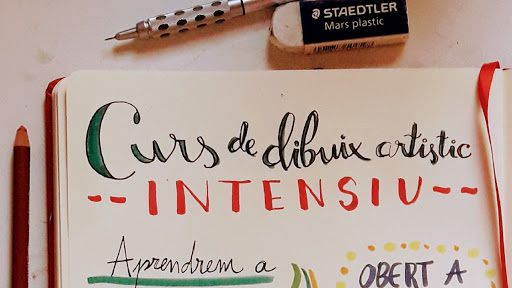 STAEDTLER
Mars plastic
Curs de dibuix artístic
--INTENSIU--
Aprendrem a
OBERT A